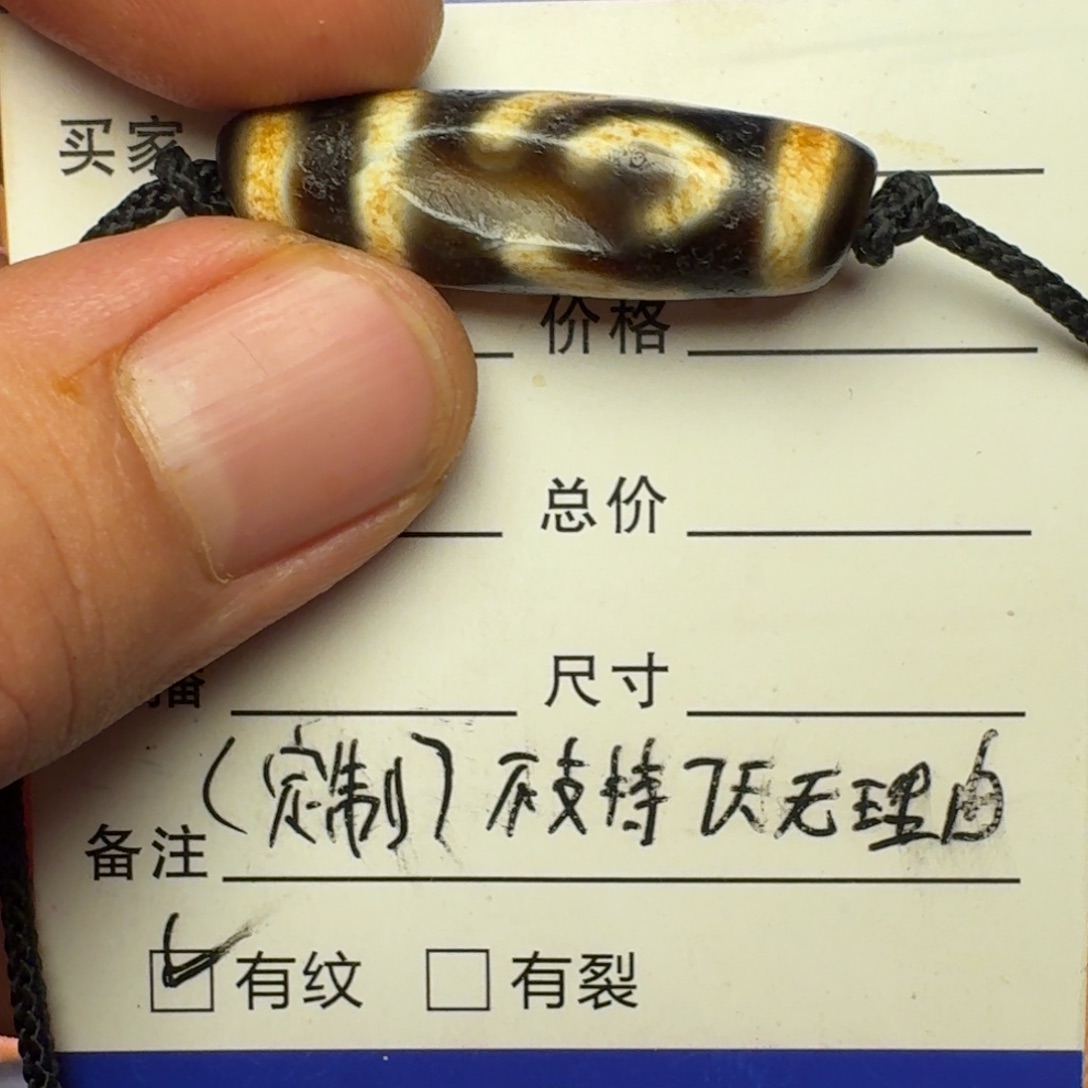 买家
价格
总价
尺寸
备注 (定制) 不支持7天无理由
有纹 有裂